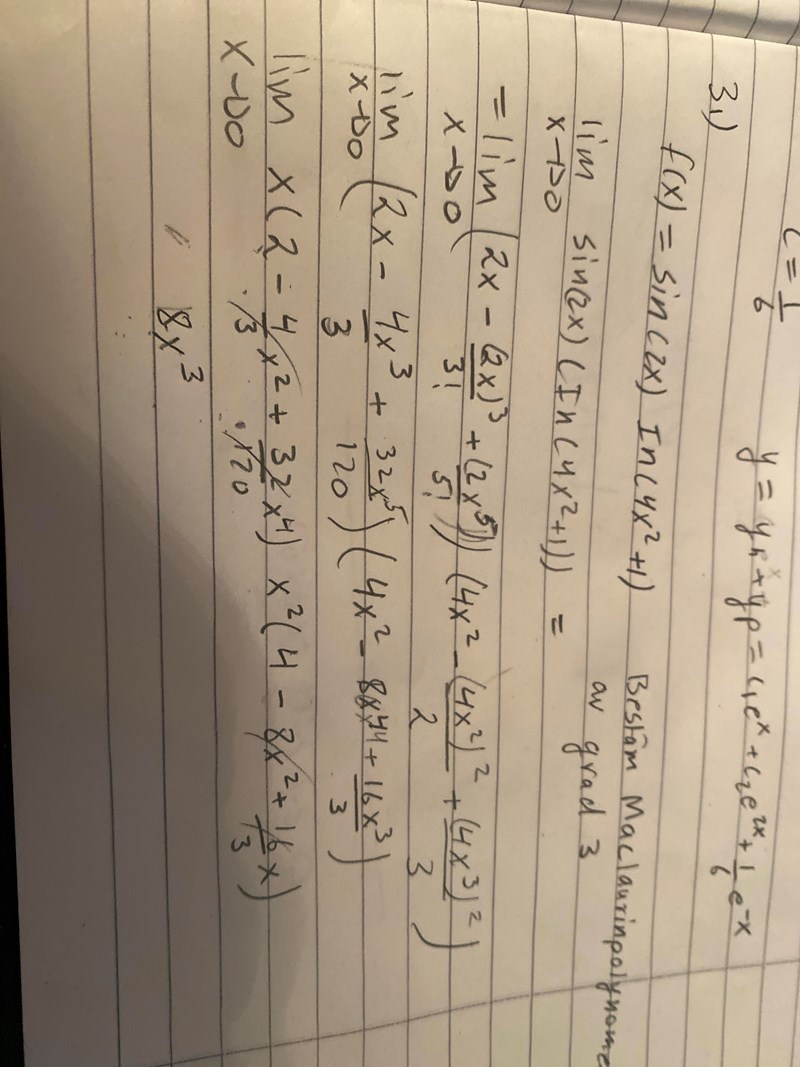 C = 1/6
y = yh + yp = C₁eˣ + C₂e²ˣ + 1/6 e⁻ˣ
3.)
f(x) = sin(2x) ln(4x² + 1) Bestäm Maclaurinpolynome
av grad 3
lim x→0 sin(2x) (ln(4x² + 1)) =
= lim x→0 (2x - (2x)³/3! + (2x⁵)/5!) (4x² - (4x²)²/2 + (4x³)²/3)
lim x→0 (2x - 4x³/3 + 32x⁵/120) (4x² - 8x⁴ + 16x³/3)
lim x→0 x(2 - 4/3 x² + 32/120 x⁴) x²(4 - 8x² + 16/3 x)
8x³